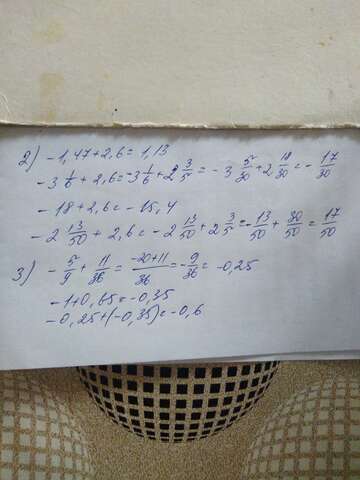 2) -1,47+2,6=1,13
-3 1/6 + 2,6=-3 1/6 + 2 3/5 = -3 5/30 + 2 18/30 = - 17/30
-18+2,6=-15,4
-2 13/50 + 2,6=-2 13/50 + 2 3/5 = -13/50 + 30/50 = 17/50
3) - 5/9 + 11/36 = -20+11/36 = - 9/36 = -0,25
-1+0,65=-0,35
-0,25+(-0,35)=-0,6